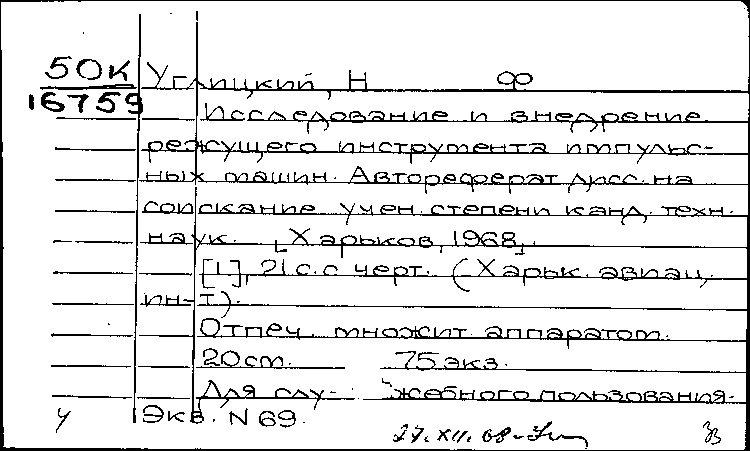 50К Углицкий, Н Ф
16759 Исследование и внедрение
режущего инструмента импульс-
ных машин. Автореферат дисс. на
соискание учен. степени канд. техн.
наук. [Харьков, 1968].
[1], 21 с. с черт. (Харьк. авиац.
ин-т).
Отпеч. множит. аппаратом.
20 см. 75 экз.
Для слу- жебного пользования.
У Экз. N 69.
27.XII.68